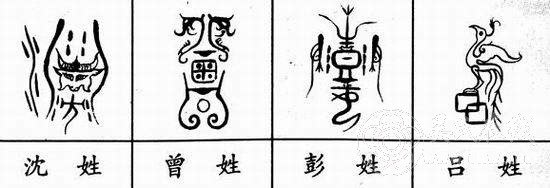 沈姓 曾姓 彭姓 吕姓